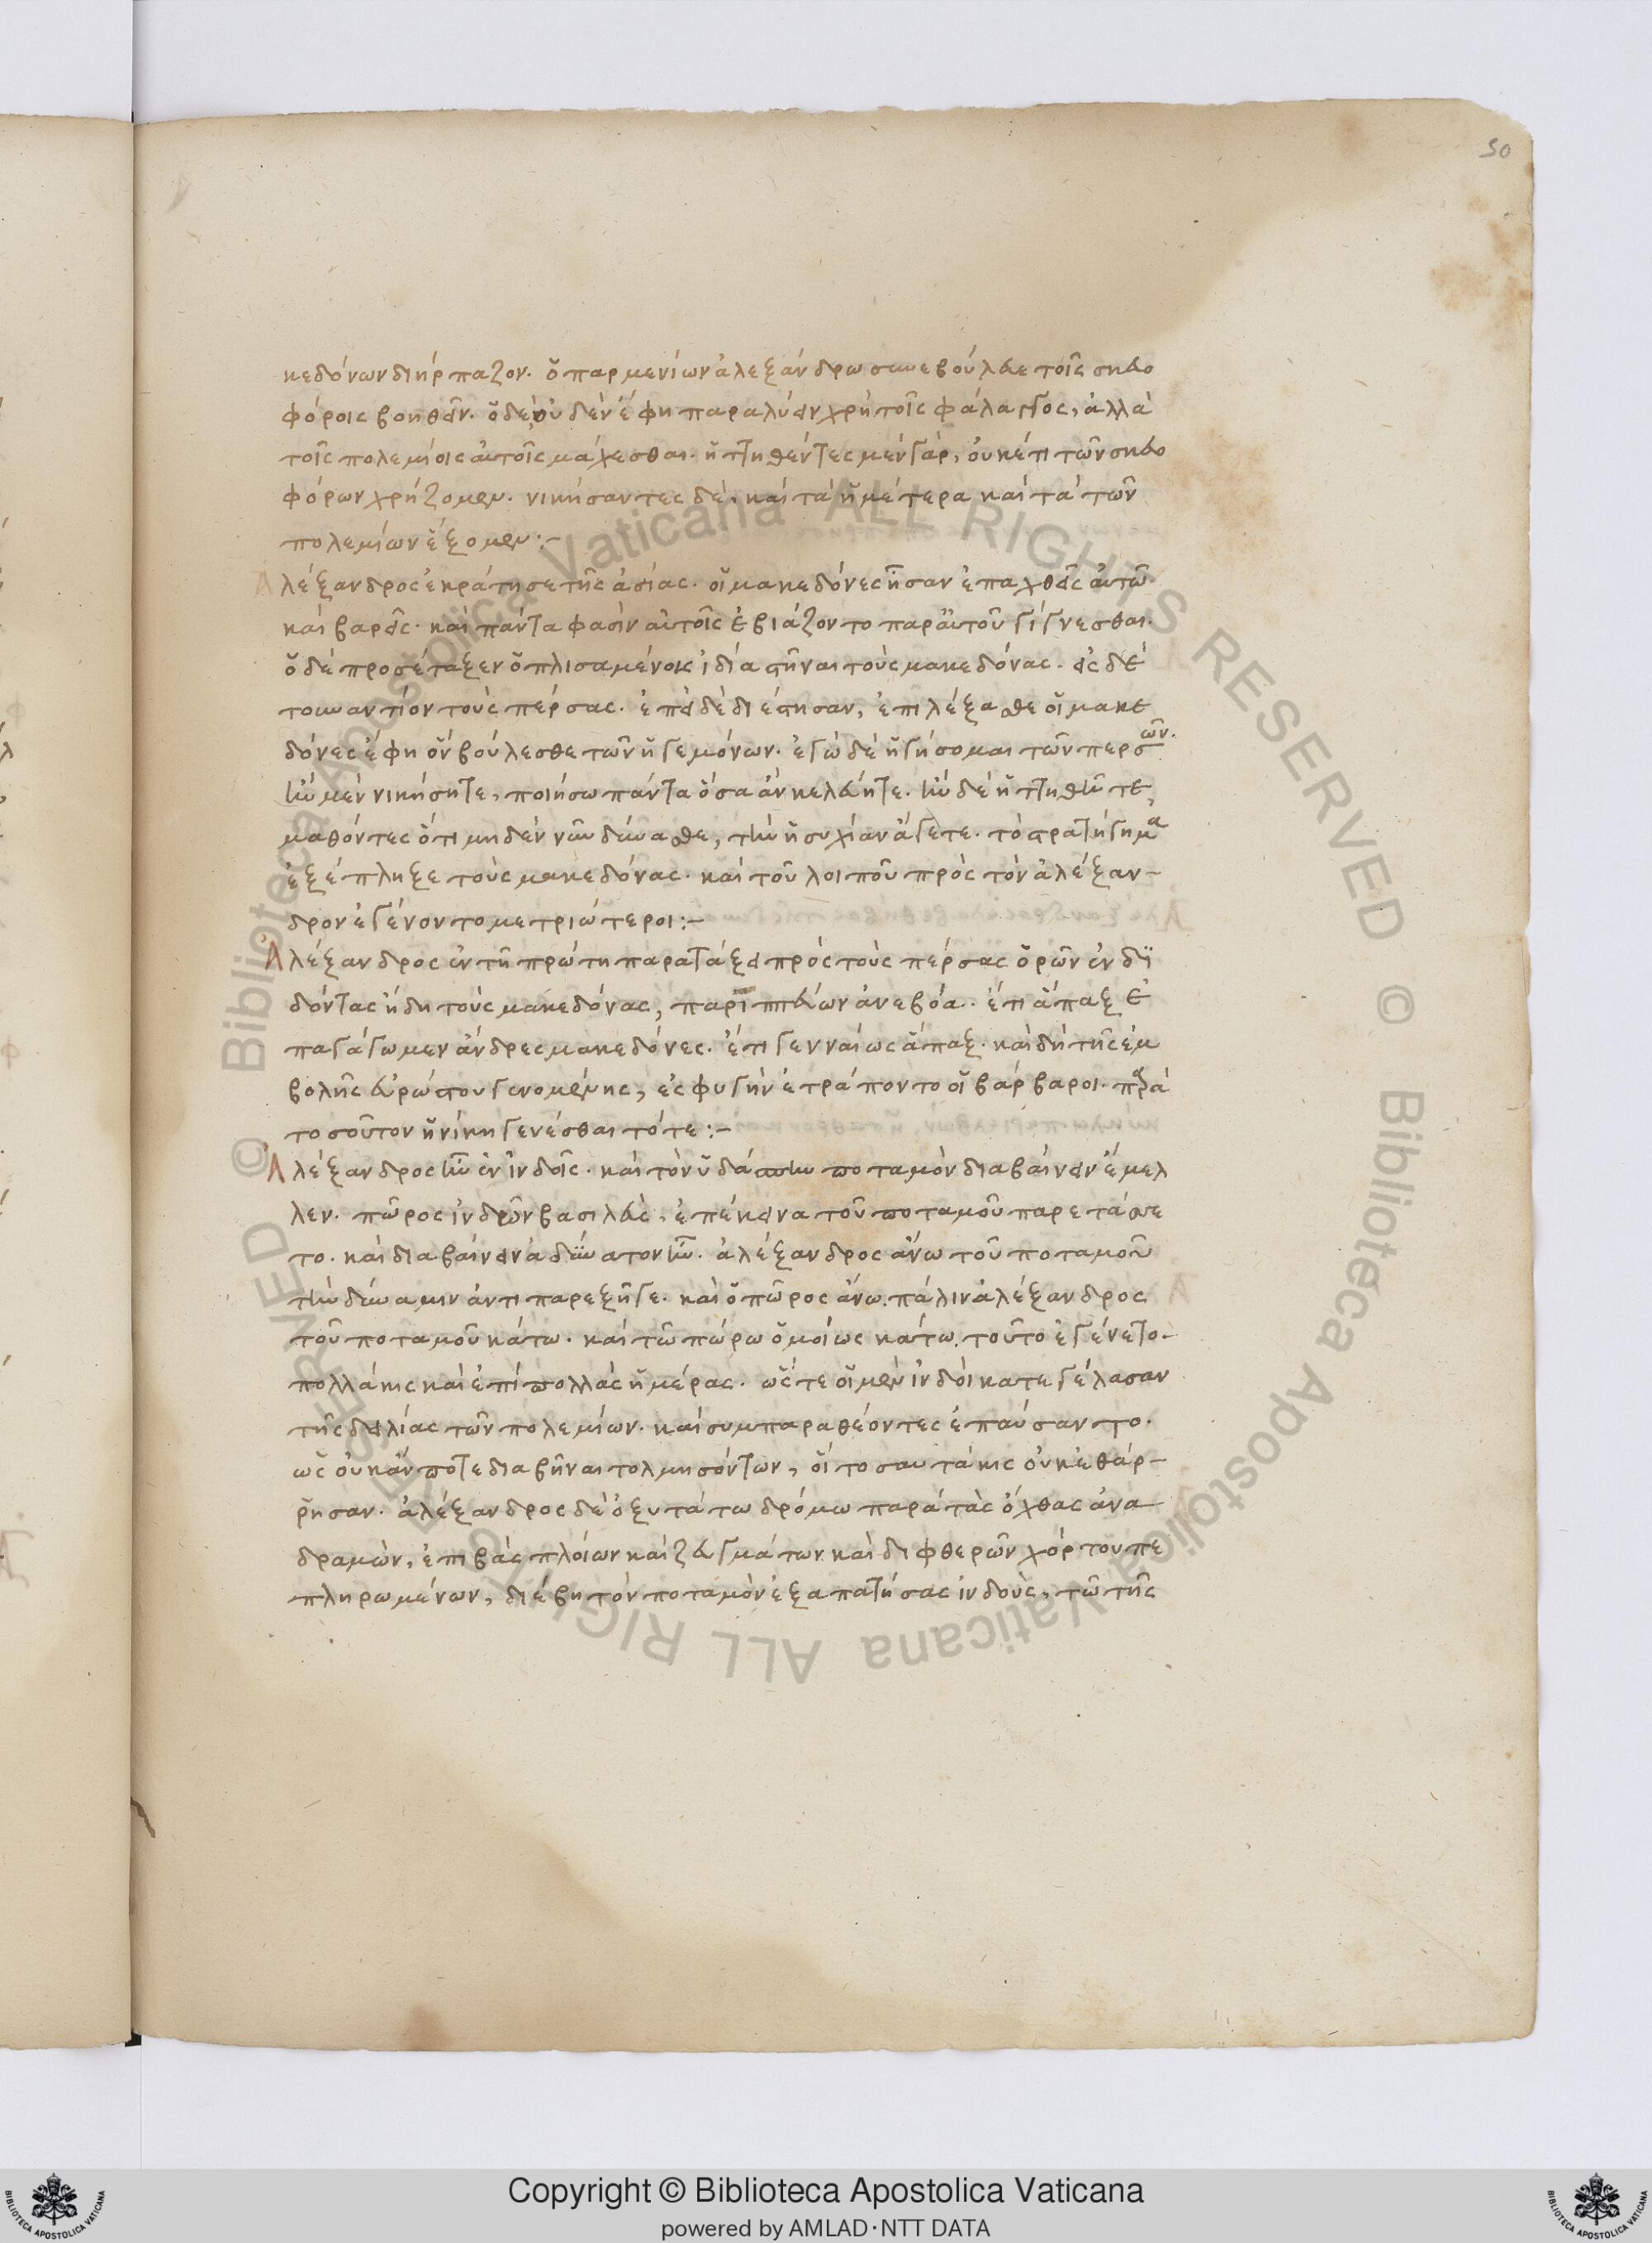 50
κεδόνων διήρπαζον. ὁ παρμενίων ἀλεξάνδρω συνεβούλευε τοῖς σκευο
φόροις βοηθεῖν. ὁ δὲ οὐδὲν ἔφη παραλύειν χρὴ τοῖς φάλαγγος, ἀλλὰ
τοῖς πολεμίοις αὐτοῖς μάχεσθαι. ἡττηθέντες μὲν γὰρ, οὐκέτι τῶν σκευο
φόρων χρήζομεν. νικήσαντες δὲ, καὶ τὰ ἡμέτερα καὶ τὰ τῶν
πολεμίων ἕξομεν:-
Ἀλέξανδρος ἐκράτησε τῆς ἀσίας. οἱ μακεδόνες ἦσαν ἐπαχθεῖς αὐτῶ
καὶ βαρεῖς. καὶ πάντα φασὶν αὐτοῖς ἐβιάζοντο παρ' αὐτοῦ γίγνεσθαι.
ὁ δὲ προσέταξεν ὁπλισαμένοις ἰδία στῆναι τοὺς μακεδόνας. εἰς δὲ
τουναντίον τοὺς πέρσας. ἐπεὶ δὲ διέστησαν, ἐπιλέξασθε οἱ μακε
δόνες ἔφη ὃν βούλεσθε τῶν ἡγεμόνων. ἐγὼ δὲ ἡγήσομαι τῶν περσῶν.
ἢν μὲν νικήσητε, ποιήσω πάντα ὅσα ἂν κελεύητε. ἢν δὲ ἡττηθῆτε,
μαθόντες ὅτι μηδὲν νῦν δύνασθε, τὴν ἡσυχίαν ἄγετε. τὸ στρατήγημα
ἐξέπληξε τοὺς μακεδόνας. καὶ τοῦ λοιποῦ πρὸς τὸν ἀλέξαν-
δρον ἐγένοντο μετριώτεροι:-
Ἀλέξανδρος ἐν τῆ πρώτη παρατάξει πρὸς τοὺς πέρσας ὁρῶν ἐνδϊ
δόντας ἤδη τοὺς μακεδόνας, παριππεύων ἀνεβόα. ἔτι ἅπαξ ἐ
παγάγωμεν ἄνδρες μακεδόνες. ἔτι γενναίως ἅπαξ. καὶ δὴ τῆς ἐμ
βολῆς εὐρώστου γενομένης, ἐς φυγὴν ἐτράποντο οἱ βάρβαροι. παρὰ
τοσοῦτον ἡ νίκη γενέσθαι τότε:-
Ἀλέξανδρος ἦν ἐν ἰνδοῖς. καὶ τὸν ὑδάσπην ποταμὸν διαβαίνειν ἔμελ
λεν. πῶρος ἰνδῶν βασιλεὺς, ἐπέκεινα τοῦ ποταμοῦ παρετάσσε
το. καὶ διαβαίνειν ἀδύνατον ἦν. ἀλέξανδρος ἄνω τοῦ ποταμοῦ
τὴν δύναμιν ἀντιπαρεξῆγε. καὶ ὁ πῶρος ἄνω. πάλιν ἀλέξανδρος
τοῦ ποταμοῦ κάτω. καὶ τῶ πώρω ὁμοίως κάτω. τοῦτο ἐγένετο.
πολλάκις καὶ ἐπὶ πολλὰς ἡμέρας. ὥς τε οἱ μὲν ἰνδοὶ κατεγέλασαν
τῆς δειλίας τῶν πολεμίων. καὶ συμπαραθέοντες ἐπαύσαντο.
ὡς οὐκ ἄν ποτε διαβῆναι τολμησόντων, οἳ τοσαυτάκις οὐκ ἐθάρ-
ρησαν. ἀλέξανδρος δὲ ὀξυτάτω δρόμω παρὰ τὰς ὄχθας ἀνα
δραμὼν, ἐπιβὰς πλοίων καὶ ζευγμάτων καὶ διφθερῶν χόρτου πε
πληρωμένων, διέβη τὸν ποταμὸν ἐξαπατήσας ἰνδοὺς, τῶ τῆς
© Biblioteca Apostolica Vaticana ALL RIGHTS RESERVED © Biblioteca Apostolica Vaticana ALL RIGHTS RESERVED
Copyright © Biblioteca Apostolica Vaticana
powered by AMLAD·NTT DATA
BIBLIOTECA APOSTOLICA VATICANA
BIBLIOTECA APOSTOLICA VATICANA